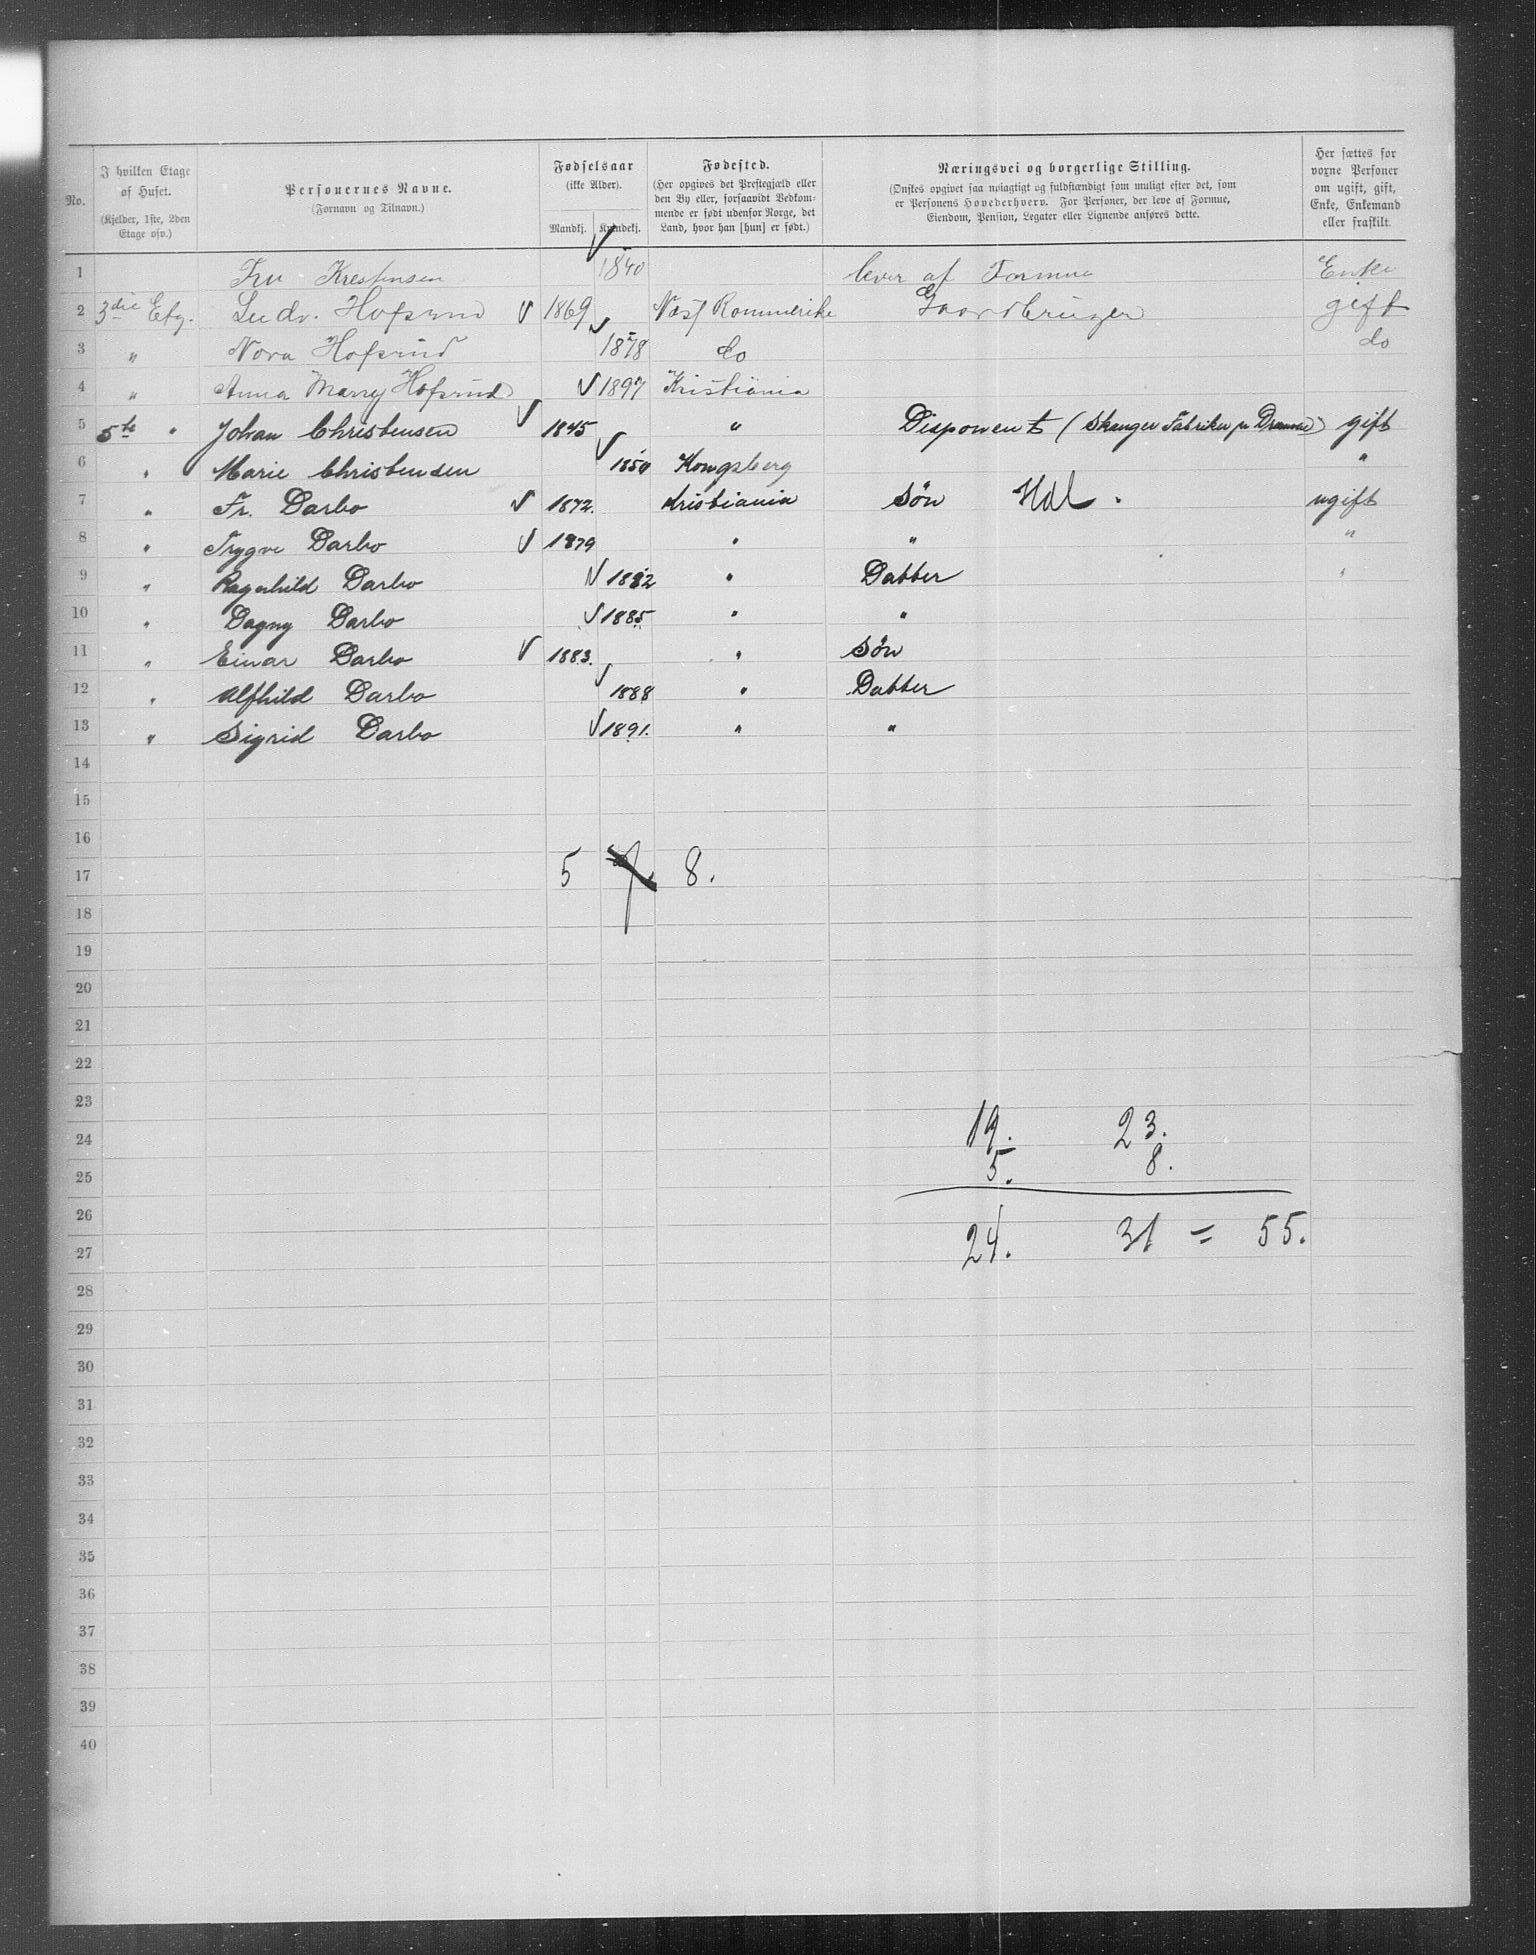 No. I hvilken Etage af Huset. (Kjelder, 1ste, 2den Etage osv.) Personernes Navne. (Fornavn og Tilnavn.) Fødselsaar (ikke Alder). Mandkj. Kvindekj. Fødested. (Her opgives det Prestegjæld eller den By eller, forsaavidt Vedkommende er født udenfor Norge, det Land, hvor han [hun] er født.) Næringsvei og borgerlige Stilling. (Ønskes opgivet saa nøiagtigt og fuldstændigt som muligt efter det, som er Personens Hovederhverv. For Personer, der leve af Formue, Eiendom, Pension, Legater eller Lignende anføres dette. Her sættes for voxne Personer om ugift, gift, Enke, Enkemand eller fraskilt.
1 Fru Krestensen 1840 lever af Formue Enke
2 3die Etg. Ludv. Hofsrud 1869 Næs Rommerike Gaardbruger gift
3 " Nora Hofsrud 1878 do do
4 " Anna Marry Hofsrud 1897 Kristiania
5 5te " Johan Christensen 1845 " Disponent (Skanger Fabriker pr Drammen) gift
6 " Marie Christensen 1850 Kongsberg "
7 " Fr. Darbo 1872. Kristiania Søn Hdl. ugift
8 " Trygve Darbo 1879 " " "
9 " Ragnhild Darbo 1882 " Datter "
10 " Dagny Darbo 1885 " "
11 " Einar Darbo 1883. " Søn
12 " Alfhild Darbo 1888 " Datter
13 " Sigrid Darbo 1891. " "
14
15
16
17 5 7. 8.
18
19
20
21
22
23
24 19. 23.
25 5. 8.
26
27 24. 31 = 55.
28
29
30
31
32
33
34
35
36
37
38
39
40